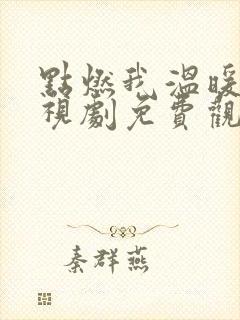 點燃我溫暖
視劇免費觀
秦群燕